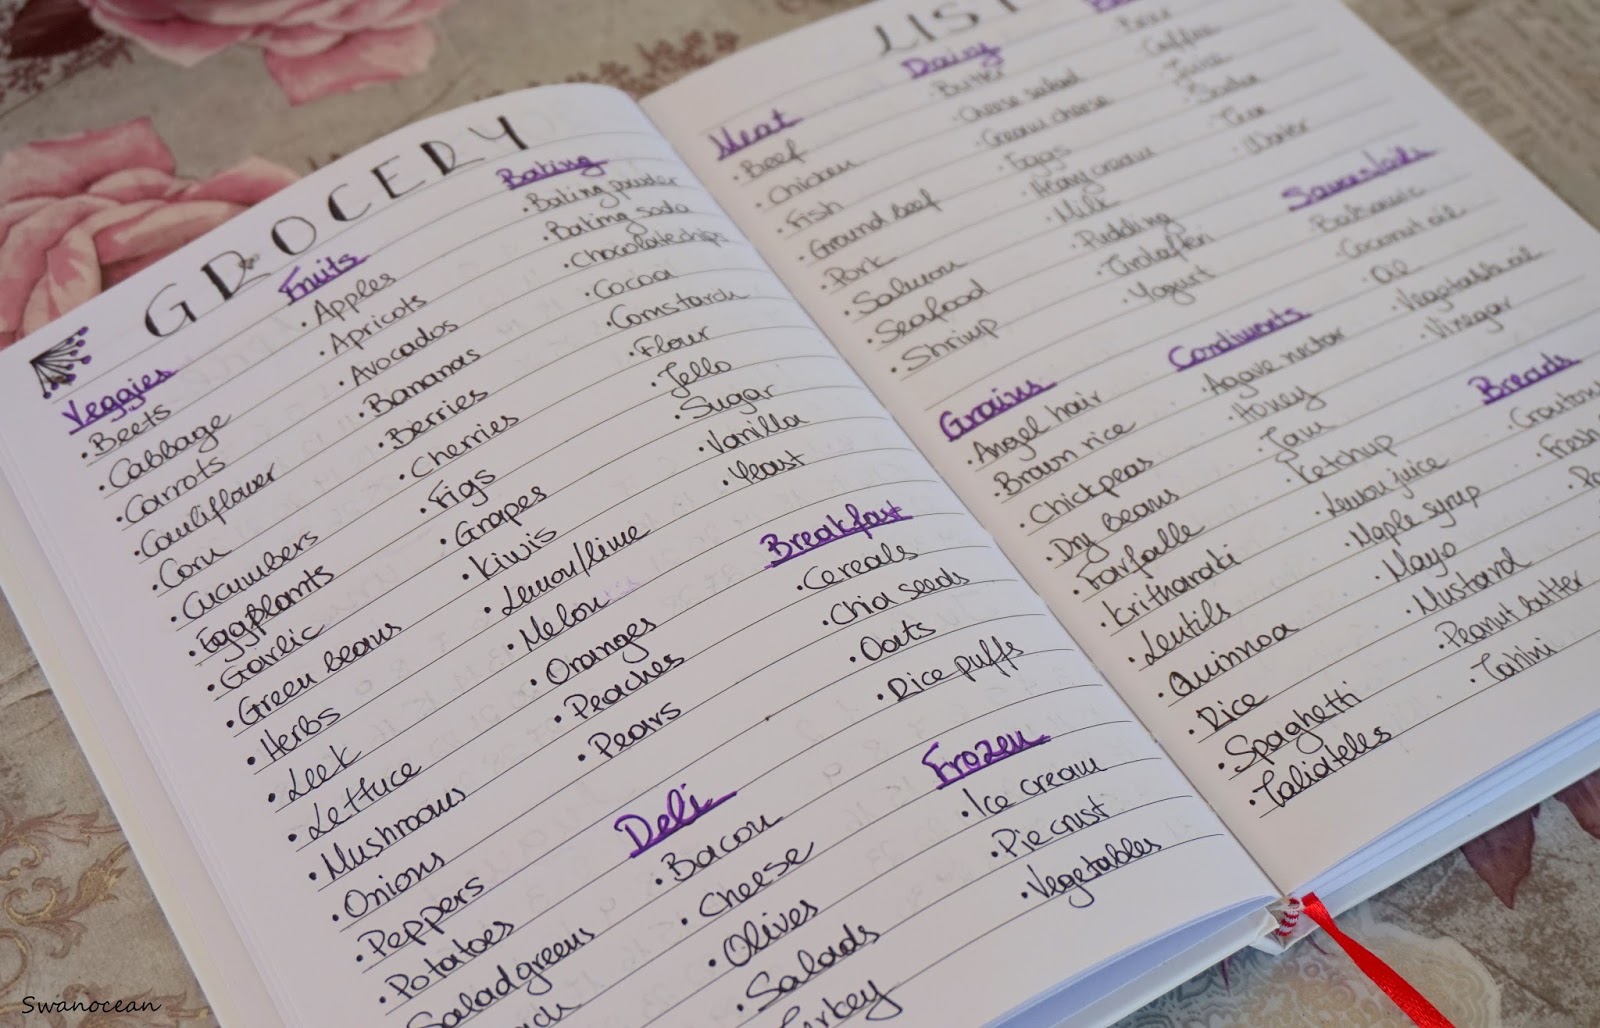 GROCERY
Veggies
• Beets
• Cabbage
• Carrots
• Cauliflower
• Corn
• Cucumbers
• Eggplants
• Garlic
• Green beans
• Herbs
• Leek
• Lettuce
• Mushrooms
• Onions
• Peppers
• Potatoes
Salad greens
Fruits
• Apples
• Apricots
• Avocados
• Bananas
• Berries
• Cherries
• Figs
• Grapes
• Kiwis
• Lemon/lime
• Melon
• Oranges
• Peaches
• Pears
Baking
• Baking powder
• Baking soda
• Chocolate chips
• Cocoa
• Cornstarch
• Flour
• Jello
• Sugar
• Vanilla
• Yeast
Breakfast
• Cereals
• Chia seeds
• Oats
• Rice puffs
Deli
• Bacon
• Cheese
• Olives
• Salads
Turkey
Frozen
• Ice cream
• Pie crust
• Vegetables
LIST
Meat
• Beef
• Chicken
• Fish
• Ground beef
• Pork
• Salmon
• Seafood
• Shrimp
Dairy
• Butter
• Cheese salad
• Cream cheese
• Eggs
• Heavy cream
• Milk
• Pudding
• Yogurt
• Beer
• Coffee
• Juice
• Soda
• Tea
• Water
• Balsamic
• Coconut oil
• Oil
• Vegetable oil
• Vinegar
Grains
• Angel hair
• Brown rice
• Chickpeas
• Dry beans
• Farfalle
• Kritharaki
• Lentils
• Quinnoa
• Rice
• Spaghetti
• Taliateles
Condiments
• Agave nectar
• Honey
• Jam
• Ketchup
• Lemon juice
• Maple syrup
• Mayo
• Mustard
• Peanut butter
• Tahini
Breads
• Fresh
Swanocean